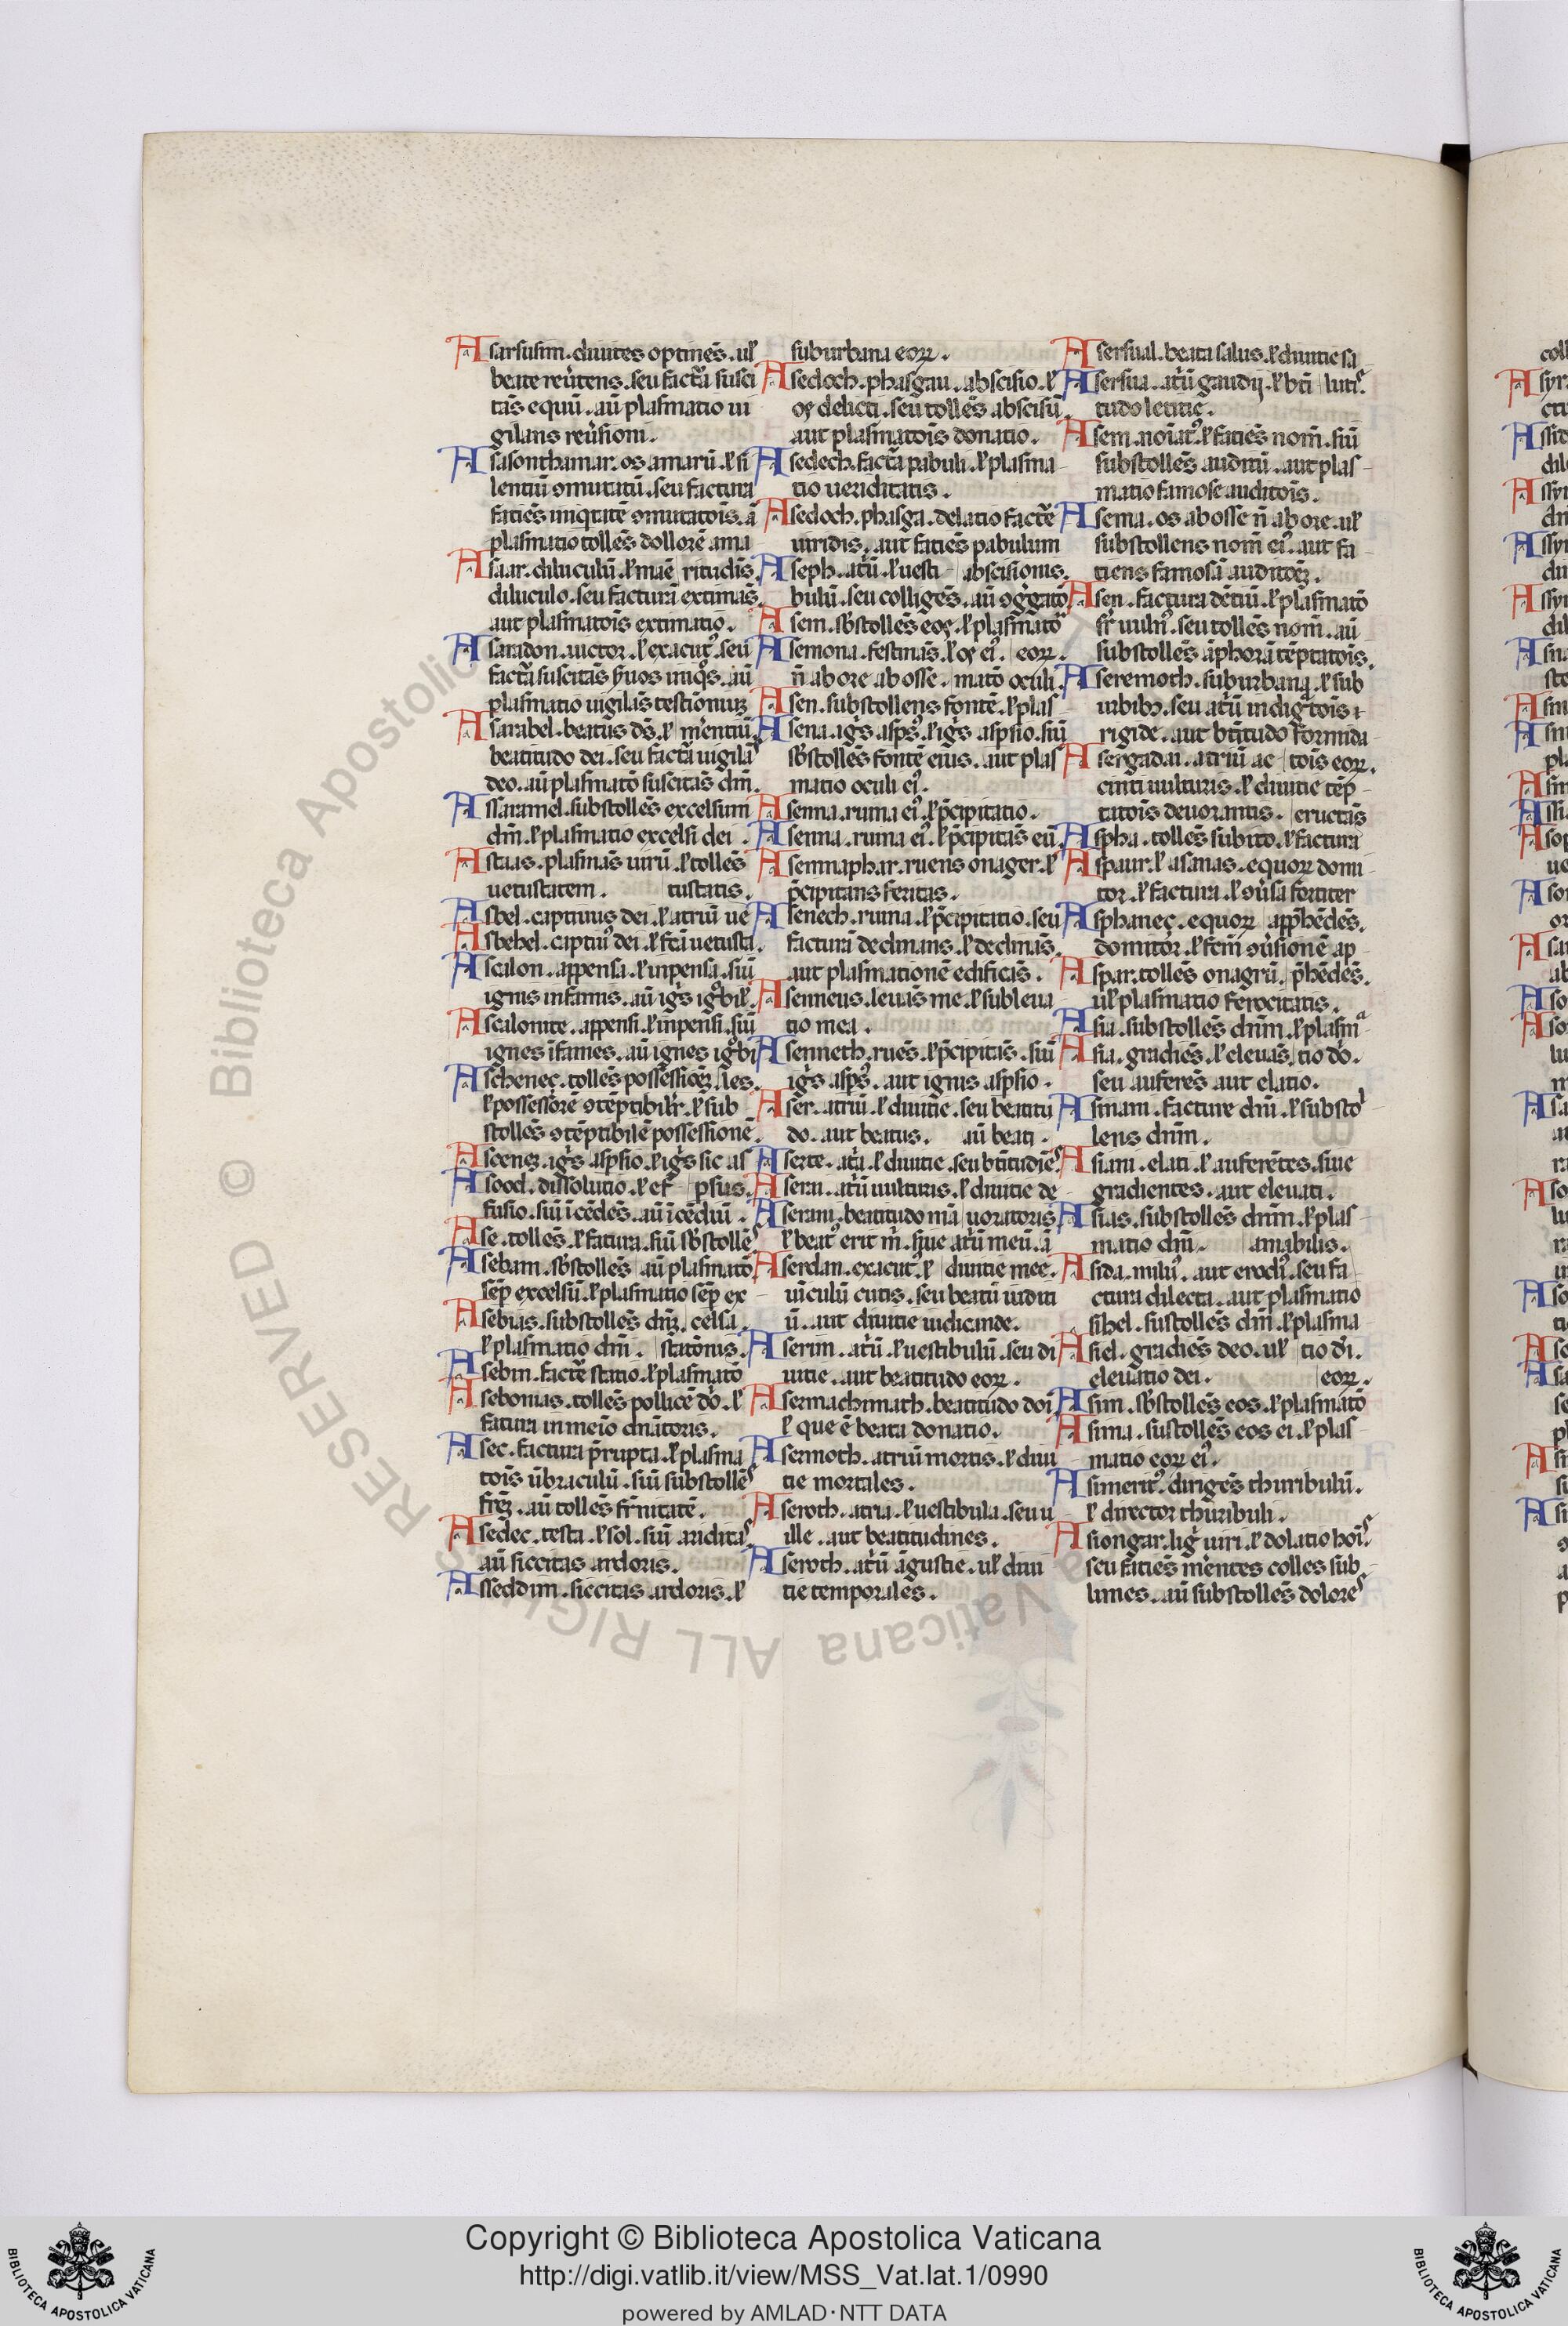 Asarsusim. diuites optinēs. ul̄
beate reu̾tens. seu factā susci
tās equū. aū plasmatio ui
gilans reu̾sioni.
Asasonthamar. os amarū. l̄ si
lentiū ꝯmutatū. seu factura
faciēs iniq̇tatē ꝯmutatōis. ā
plasmatio tollēs dollorē ama
Asaar. diluculū. l̄ manē ritudīs.
diluculo. seu facturā extimās.
aut plasmatōis extimatio.
Asaradon. uictor. l̄ exacut᷒. seu
plasmatio uigilās
Asarabel. beatus dō̄s. l̄
beatitudo dei. seu factā uigilās
deo. aū plasmatō suscitās dn̄m.
Assaramel. substollēs excelsum
dn̄m. l̄ plasmatio excelsi dei.
Astaas. plasmās uirū. l̄ tollēs
uetustatem. tustatis.
Asbel. captiuus dei. l̄ atriū ue
Asbehel. captiu᷒ dei. l̄ fcā uetusta
Ascalon. appensa. l̄ inpensa. siū
ignis infamis. aū
Ascalonite. appensi. l̄ inpensi. siū
ignes īfames. aū ignes
Aschenec. tollēs
l̄ possessorē l̄ sub
stollēs ꝯtēptibilē possessionē.
Ascenez.
Asood. dissolutio. l̄ ef psus.
fusio. siū īcēdēs. aū īcēdiū.
Ase. tollēs. l̄ factura. siū sb̄stollēs
Asebam. sb̄stollēs aū plasmatō
sēp excelsū. l̄ plasmatio sēp ex
Asebias. substollēs celsa.
l̄ plasmatio dn̄i. statōnis.
Asebin. factē statio. l̄ plasmatō
Asebonias. tollēs pollicē l̄
Asec. factura p̄rupta. l̄ plasma
tōis ūbraculū. siū substollēs
aū tollēs
Asedec. testa. l̄ sol. siū aridita
aū siccitas ardoris.
Asseddim. siccitas ardoris. l̄
suburbana eoꝝ.
Asedoch. phasgau. abscisio. l̄
delicti. seu tollēs abscisū.
aut plasmatōis donatio.
Asedech. factā pabuli. l̄ plasma
tio ueriditatis.
Asedoch. phasga. delatio factē
uiridis. aut faciēs pabulum
Aseph. atū. l̄ uesti abscisionis.
bulū. seu colligēs. aū
Asem. sb̄stollēs eos. l̄ plasmatō
Asemona. festinās. l̄ os ei᷒. eoꝝ.
n̄ ab ore ab osse. matō oculi.
Asen. substollens fontē. l̄ plas
Asena.
sb̄stollēs fontē eius. aut plas
matio oculi ei᷒.
Asenna. ruina ei᷒. l̄ p̄cipitatio.
Asenna. ruina ei᷒. l̄ p̄cipitās eū
Asennaphar. ruens onager. l̄
p̄cipitans feritas.
Asenech. ruina. l̄ p̄cipitatio. seu
facturā declinans. l̄ declinās.
aut plasmationē edificās.
Asenneus. leuās me. l̄ subleua
tio mea.
Asenneth. ruēs. l̄ p̄cipitās. siū
aut ignis aspsio.
Aser. atriū. l̄ diuitie. seu beatitu
do. aut beatus. aū beati.
Aserte. l̄ diuitie. seu
Aserai. atū uulturis. l̄ diuitie de
Aserani. beatitudo mā uoratoris
l̄ beat᷒ erit siue atū meū. ā
Aserdan. exacut᷒. l̄ diuitie mee.
uīculū cutis. seu beatū uiditi
ū. aut diuitie uidicande.
Aserim. atū. l̄ uestibulū. seu di
uitie. aut beatitudo eoꝝ.
Asermachimath. beatitudo doī
l̄ que ē beata donatio.
Asermoth. atriū mortis. l̄ diui
tie mortales.
Aseroth. atria. l̄ uestibula. seu u
ille. aut beatitudines.
Aseroth. atū āgustie. ul̄ diui
tie temporales.
Asersual. beata salus. l̄ diuitie sa
Asersua. atū gaudij. l̄ lutis.
tudo letitie.
Asem. l̄ faciēs nom̄. siū
substollēs auditū. aut plas
matio famose auditōis.
Asema. os ab osse n̄ ab ore. ul̄
substollens nom̄ ei᷒. aut fa
tiens famosā
Asen. factura l̄ plasmatō
seu tollēs nom̄. aū
substollēs āphorā tēptatōis.
Aseremoth. suburbana. l̄ sub
urbib. seu atū indig̾tōis ⁊
rigide. aut formida
Asergadai. atriū ac tōis eoꝝ.
cinti uulturis. l̄ diuitie tēp
tatōis deuorantis. eructās
Aspha. tollēs subito. l̄ factura
Aspaur. l̄ asinas. equoꝝ domi
tor. l̄ factura. fortiter
Asphanec. equoꝝ app̄hēdēs.
domitor. l̄ ap
Aspar. tollēs onagrū. p̄hēdēs.
ul̄ plasmatio ferocitatis.
Asia. substollēs dn̄m. l̄ plasma
Asia. gradiēs. l̄ eleuās. tio
seu auferēs aut elatio.
Asinam. facture dn̄i. l̄ substo
lens dn̄m.
Asiani. elati. l̄ auferētes. siue
gradientes. aut eleuati.
Asias. substollēs dn̄m. l̄ plas
matio dn̄i. amabilis.
Asida. milu᷒. aut erodi᷒. seu fa
ctura dilecta. aut plasmatio
sibel. sustollēs dn̄m. l̄ plasma
Asiel. gradiēs deo. ul̄ tio
eleuatio dei. eoꝝ.
Asim. sb̄stollēs eos. l̄ plasmatō
Asima. sustollēs eos ei. l̄ plas
matio eoꝝ ei᷒.
Asimerit᷒. dirigēs thuribulū.
l̄ director thuribuli.
Asiongar. uiri. l̄ dolatio hoīs
seu faciēs colles sub
limes. aū substollēs dolorēs
© Biblioteca Apostolica Vaticana ALL RIGHTS RESERVED
Copyright © Biblioteca Apostolica Vaticana
http://digi.vatlib.it/view/MSS_Vat.lat.1/0990
powered by AMLAD·NTT DATA
BIBLIOTECA APOSTOLICA VATICANA
BIBLIOTECA APOSTOLICA VATICANA